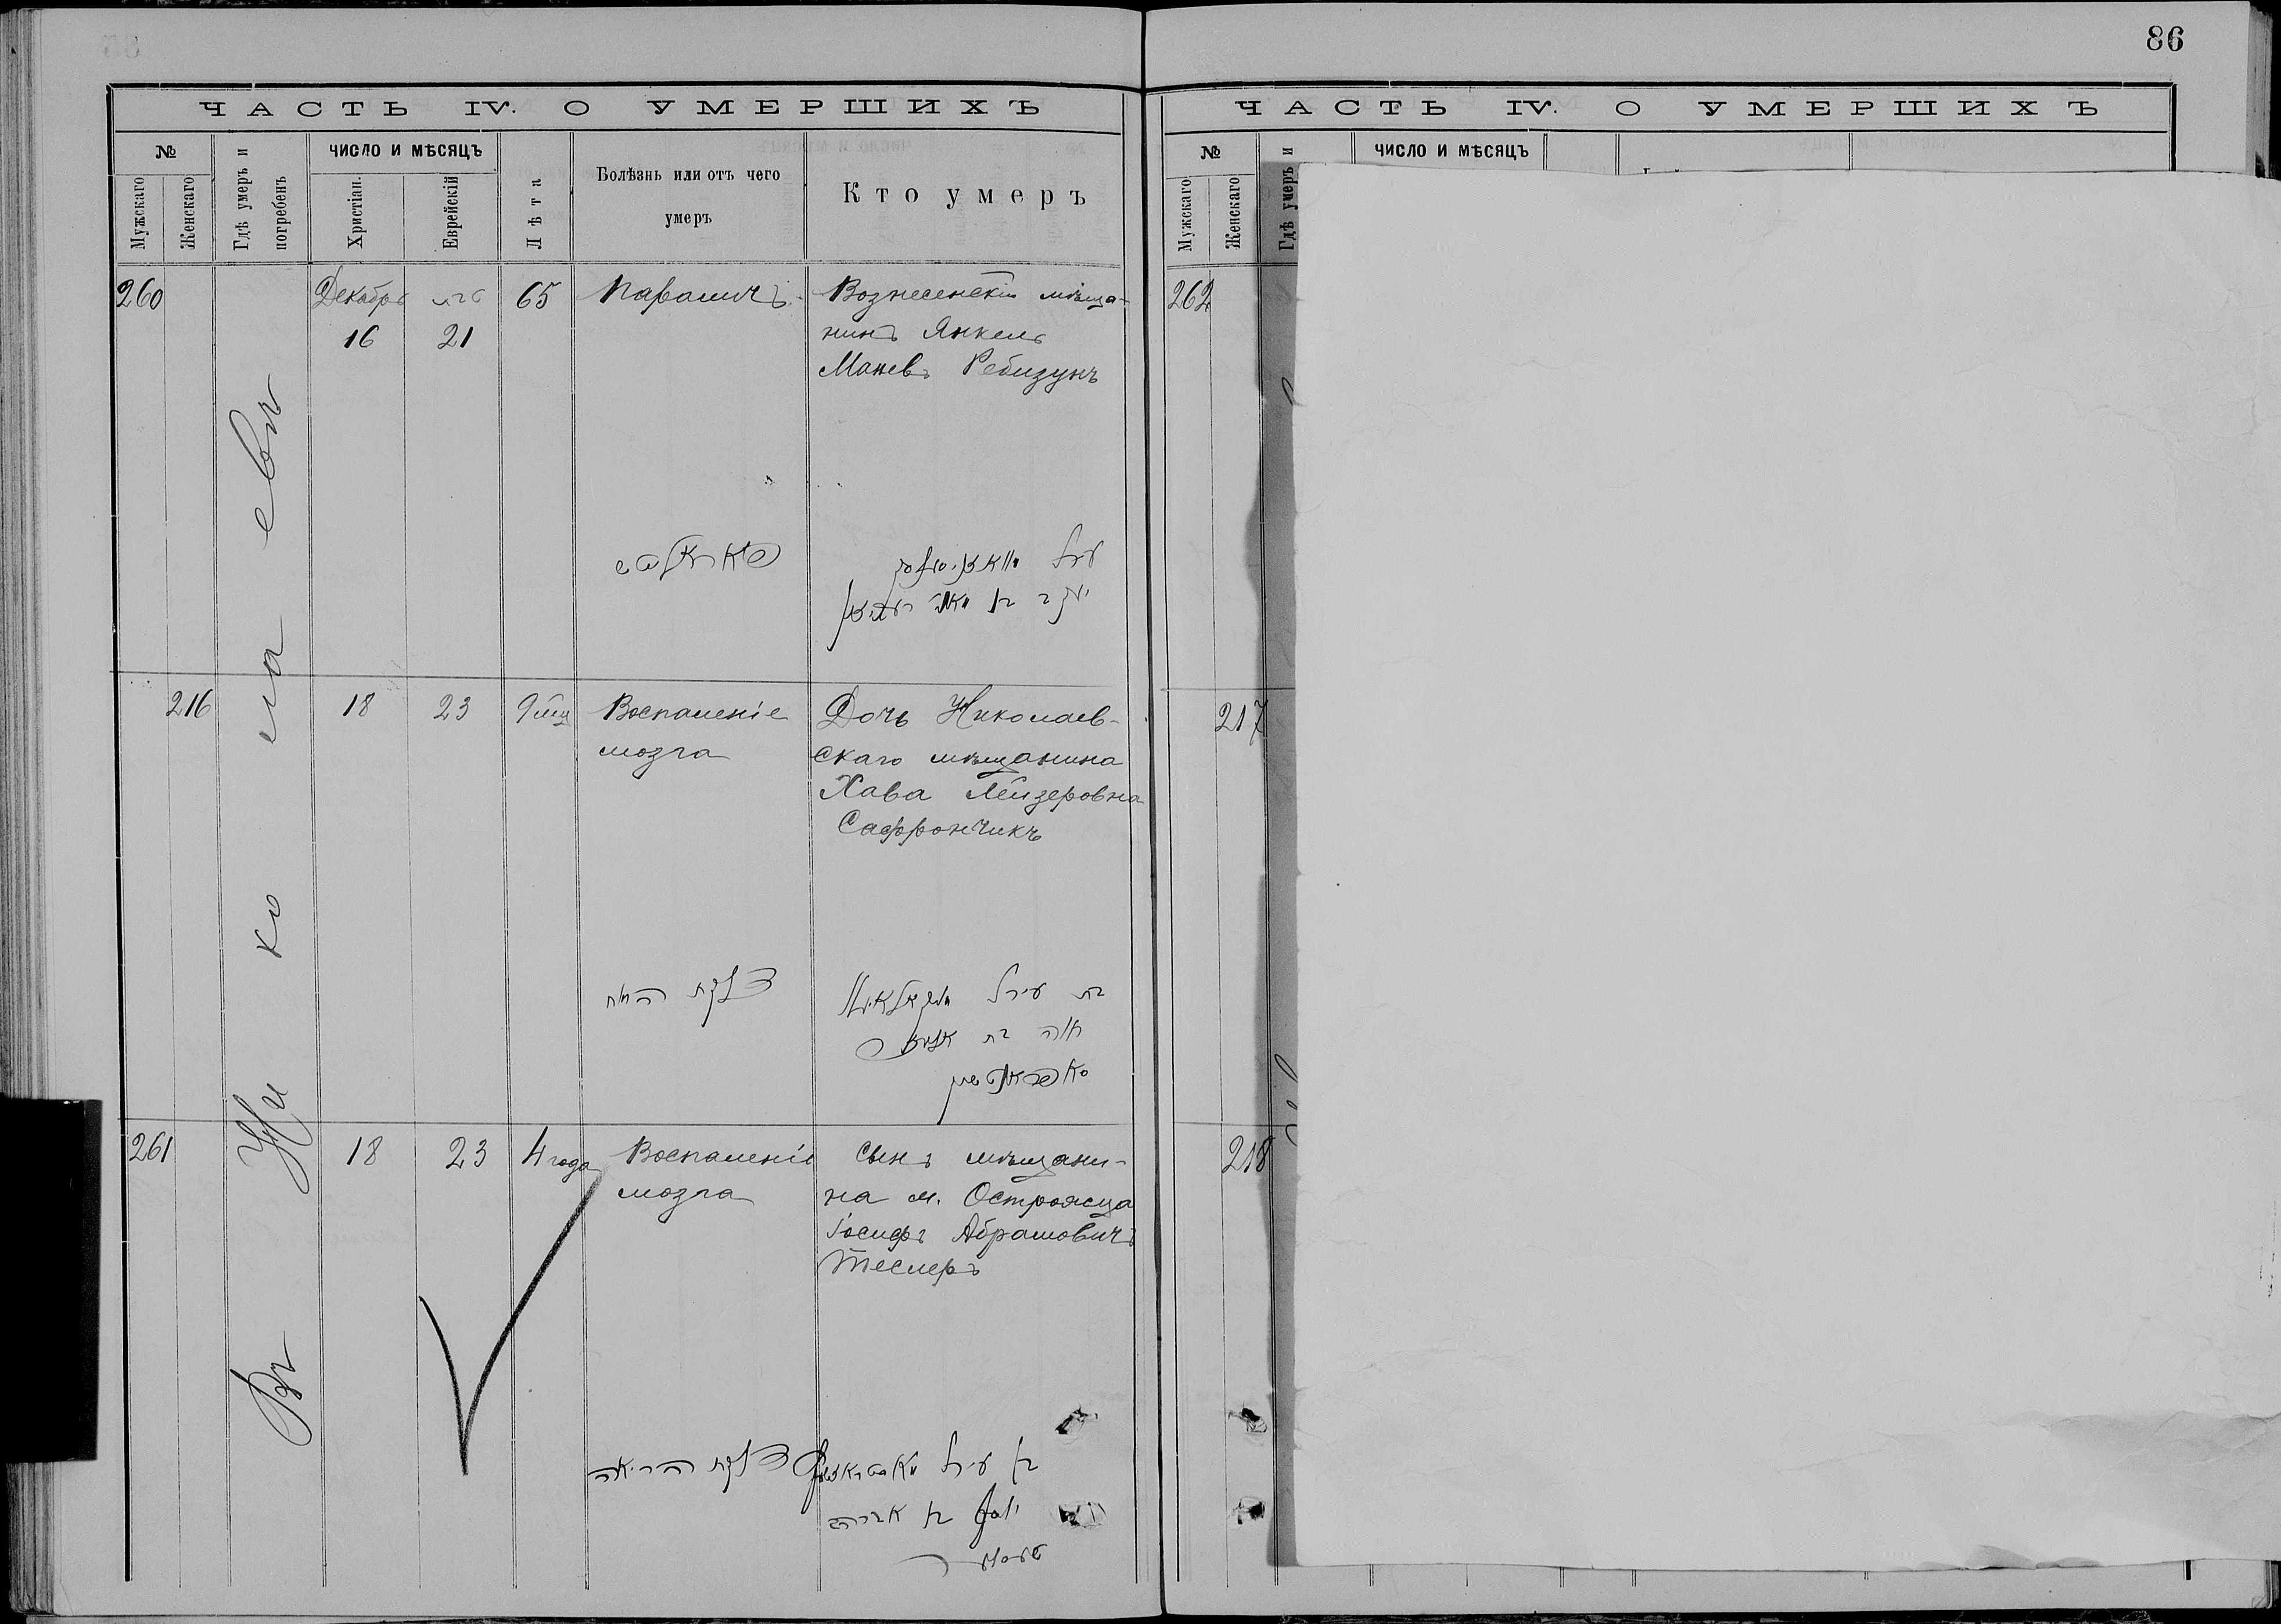 86
ЧАСТЬ IV. О УМЕРШИХЪ
№
Мужскаго
Женскаго
Гдѣ умеръ и погребенъ
ЧИСЛО И МѢСЯЦЪ
Христіан.
Еврейскій
Лѣта
Болѣзнь или отъ чего
умеръ
Кто умеръ
Въ Николаевѣ
260
Декабрь
16
טבת
21
65
Параличъ
Вознесенскій мѣща-
нинъ Янкель
Маневъ Ребизунъ
216
18
23
9 мц
Воспаленіе
мозга
Дочь Николаев-
скаго мѣщанина
Хава Лейзеровна
Сафрончикъ
דלקת המח
חוה בת
261
18
23
4 года
Воспаленіе
мозга
Сынъ мѣщани-
на м. Острожца
Іосифъ Абрамовичъ
Теслеръ
דלקת הריאה
יוסף בן אברהם
טעסלער
ЧАСТЬ IV. О УМЕРШИХЪ
№
Мужскаго
Женскаго
Гдѣ умеръ и
ЧИСЛО И МѢСЯЦЪ
262
217
218